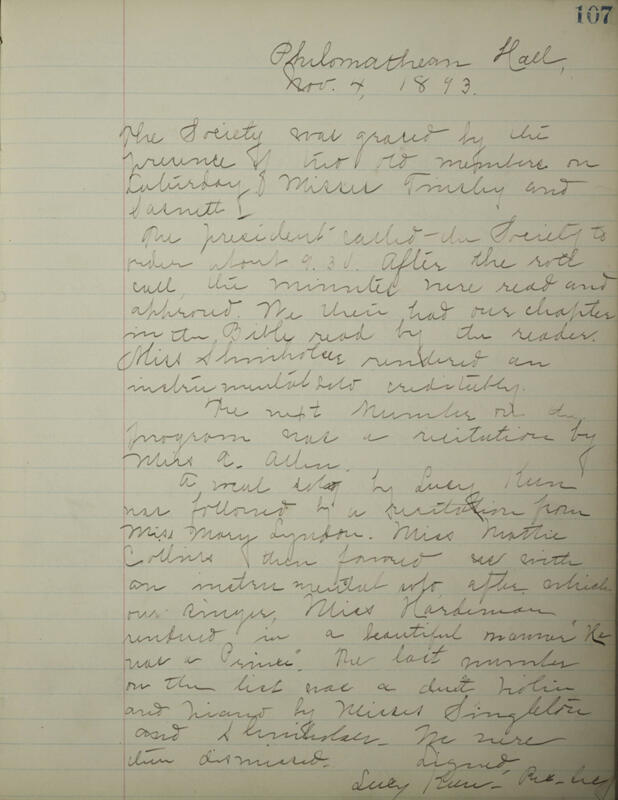 107
Philomathean Hall,
Nov. 4, 1893.
The Society was graced by the
presence of two old members on
Saturday Misses Tinsley and
Sasnett
The president called the Society to
order about 9.30. After the roll
call, the minutes were read and
approved. We then had our chapter
in the Bible read by the reader.
Miss Shinholser rendered an
instrumental solo creditably.
The next number on the
program was a recitation by
Miss A. Allen.
A vocal solo by Lucy
was followed by a recitation from
Miss Mary Lyndon. Miss Mattie
Collins then favored us with
an instrumental solo, after which
our singer, Miss Hardeman
rendered in a beautiful manner "He
was a Prince". The last number
on the list was a duet, violin
and piano by Misses Singleton
and Shinholser. We were
then dismissed. Signed,
Lucy